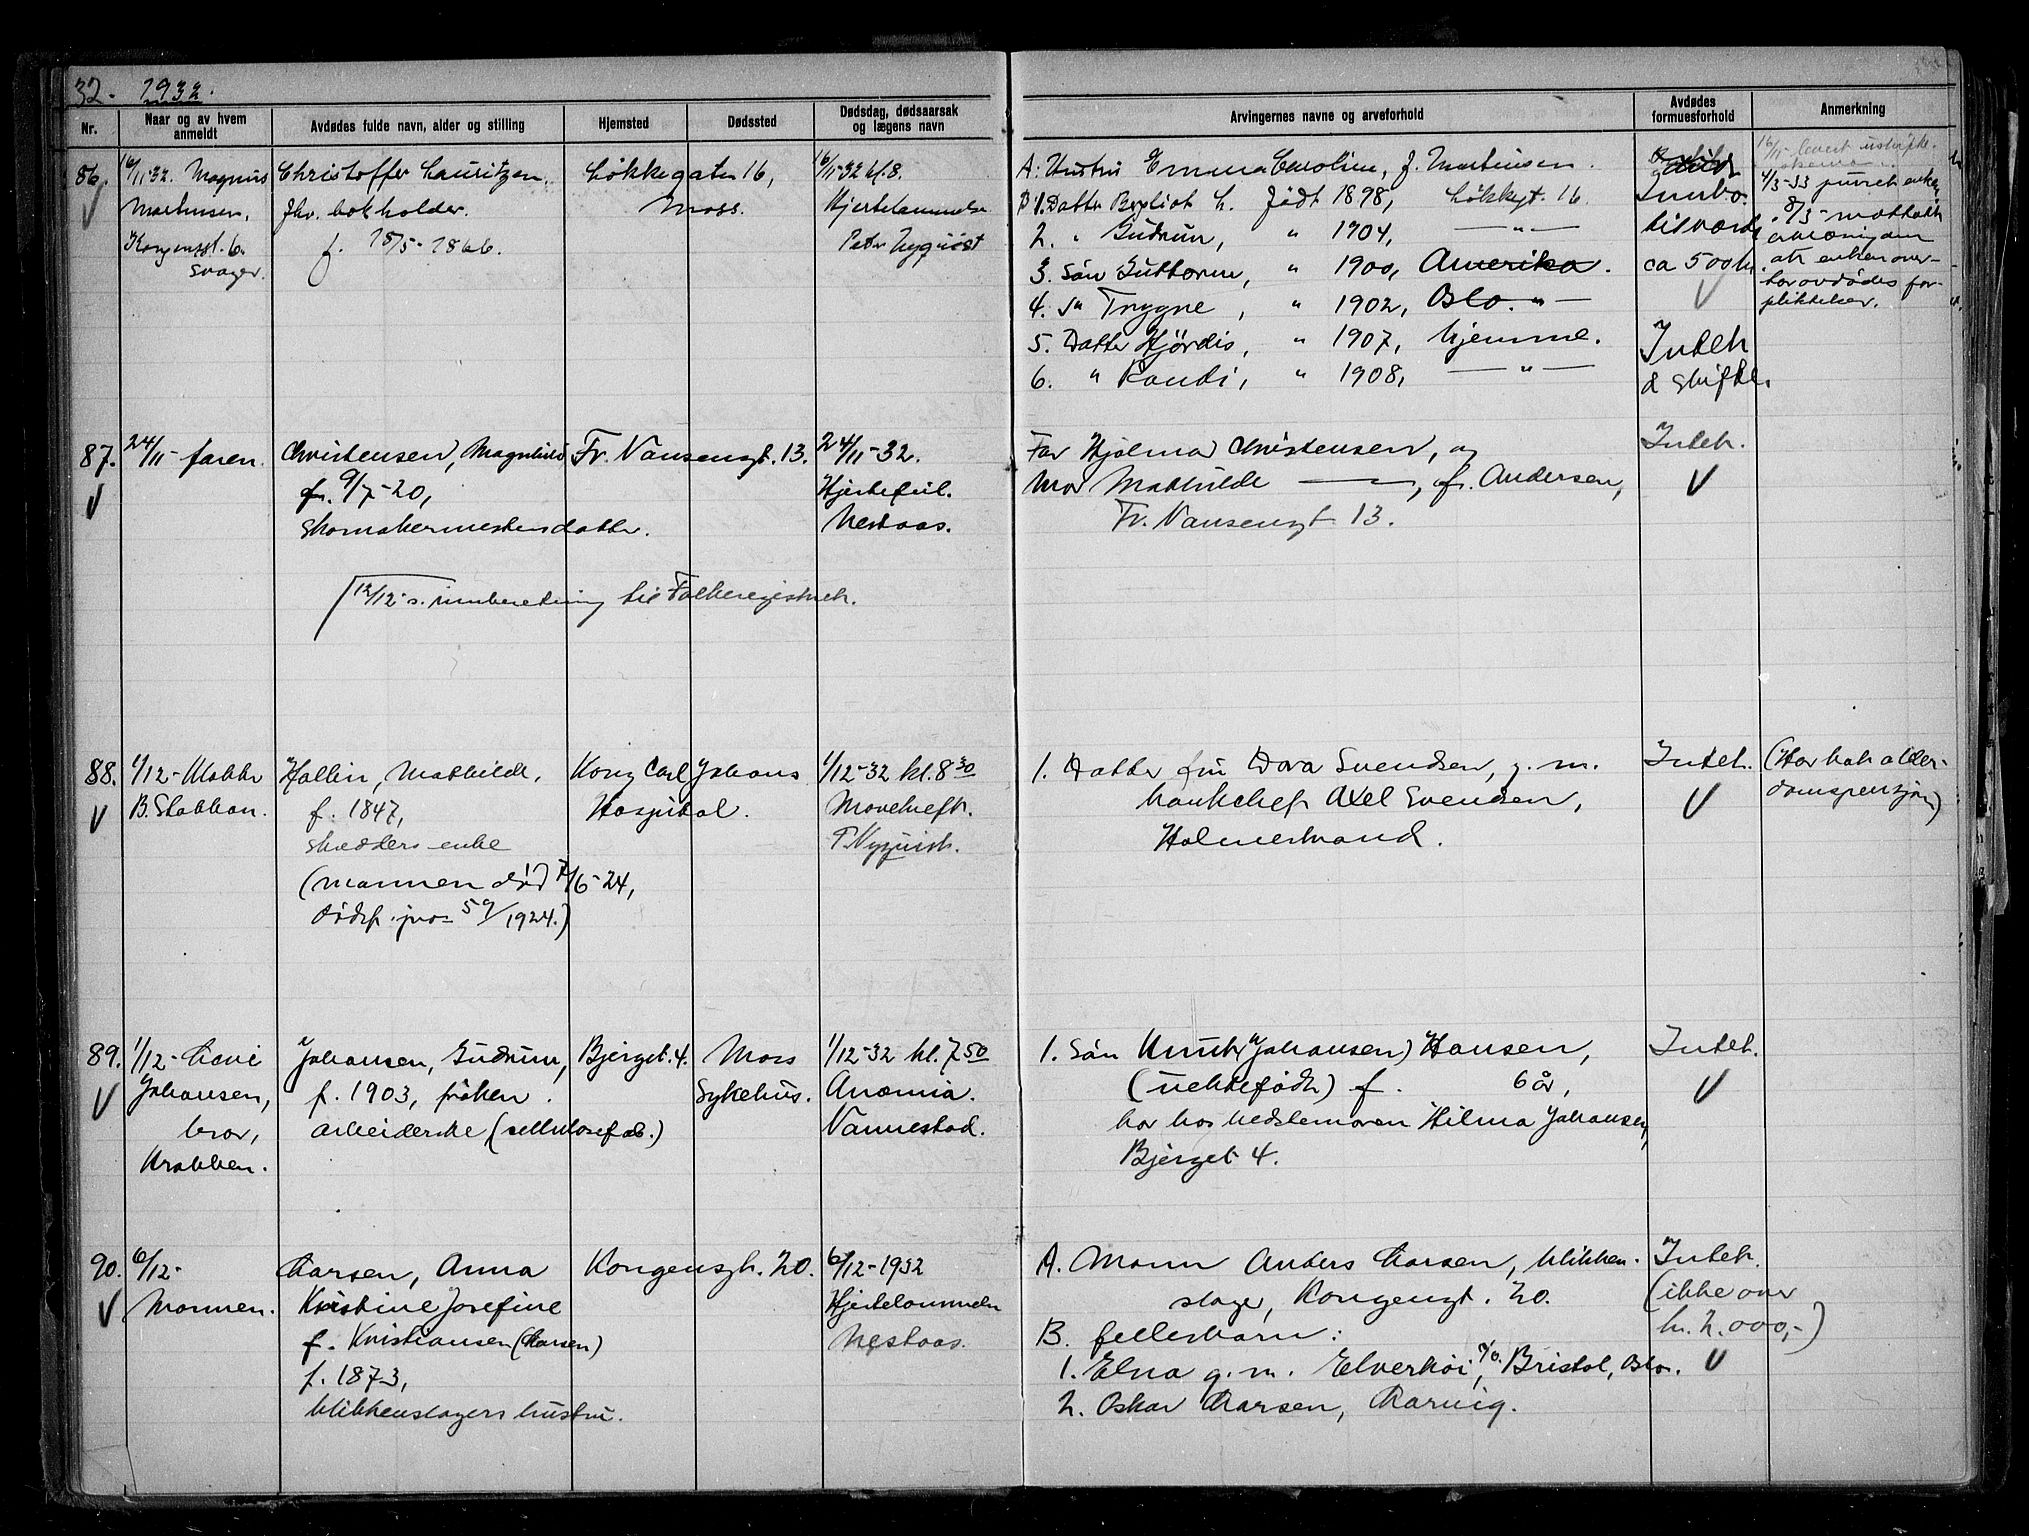 32. 1932.
Nr.
Naar og av hvem anmeldt
Avdødes fulde navn, alder og stilling
Hjemsted
Dødssted
Dødsdag, dødsaarsak og lægens navn
Arvingernes navne og arveforhold
Avdødes formuesforhold
Anmerkning
86.
16/11-32. Magnus
Martinsen,
Kongensgt. 6.
svoger.
Christoffer Lauritzen,
fhv. bokholder.
f. 18/5-1866.
Løkkegaten 16,
Moss.
16/11-32 kl. 8.
Hjertelammelse
Peter Nyquist
A. Hustru Emma Caroline, f. Martinsen
B 1. Datter Bergliot L. født 1898, Løkkegt. 16.
2. " Gudrun, " 1904, — " —
3. Søn Guttorm, " 1900, Amerika.
4. Sn Trygve, " 1902, Oslo. " —
5. Datter Hjørdis, " 1907, hjemme.
6. " Randi, " 1908, — " —
Innbo
til værdi
ca 500 kr.
Intet
å skifte.
16/11- levert
4/3-33 purret enken
8/3- mottatt
erklæring om
at enken over-
tar avdødes for-
pliktelser.
87.
24/11- faren.
Christensen, Magnhild
f. 9/7-20,
skomakermesters datter.
12/12- s. innberetning til Folkeregistret.
Fr. Nansensgt. 13.
24/11-32.
Hjertefeil.
Nestaas.
Far Hjalmar Christensen, og
Mor Mathilde —, f. Andersen,
Fr. Nansensgt 13.
Intet.
88.
1/12-
B. Stabban.
Hallin, Mathilde,
f. 1847,
skredders enke
(mannen død 7/6-24,
dødsf. prot 59/1924.)
Kong Carl Johans
Hospital.
1/12-32 kl. 8 30
Mavekreft.
P. Nyquist.
1. Datter fru Dora Svendsen, g. m.
bankchef Axel Svendsen,
Holmestrand.
Intet.
(Har hat alder-
domspensjon)
89.
1/12-
Johansen,
bror,
Krabben.
Johansen, Gudrun,
f. 1903, frøken.
arbeiderske (cellulosefab.)
Bjerget. 4.
Moss
Sykehus.
1/12-32 kl. 7 50
Anæmia.
Vannestad.
1. Søn Knut (Johansen) Hansen,
(uektefødt) f. 6 år,
bor hos bestemoren Hilma Johansen,
Bjerget 4.
Intet.
90.
6/12-
Mannen.
Larsen, Anna
Kristine Josefine
f. Kristiansen (Larsen)
f. 1873,
blikkenslagers hustru.
Kongensgt. 20.
6/12-1932
Hjertelammelse
Nestaas.
A. Mann Anders Larsen, blikken-
slager, Kongensgt. 20.
B. fellesbarn:
1. Elna g. m. Elverhøi, c/o. Bristol, Oslo.
2. Oskar Larsen, Larvig.
Intet.
(ikke over
kr. 2.000,-)